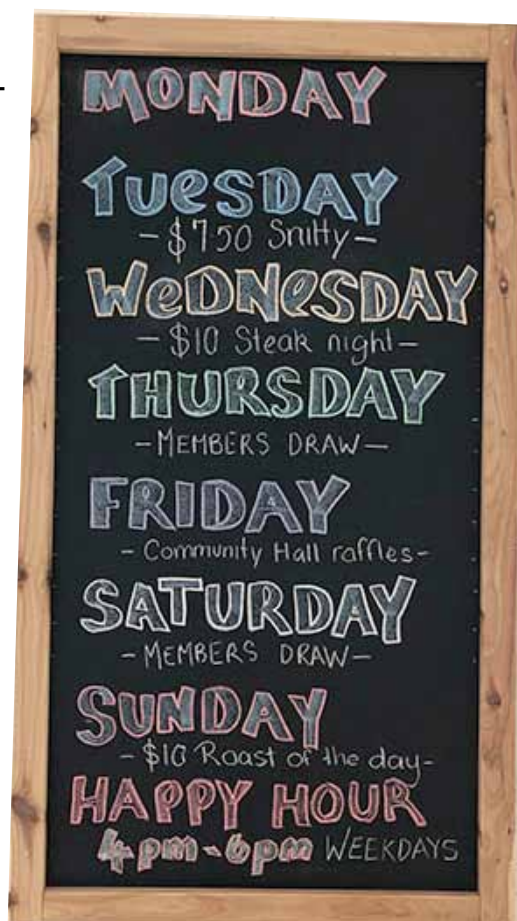 MONDAY
TUeSDAY
- $750 Snitty -
WeDNeSDAY
- $10 Steak night -
THURSDAY
- MEMBERS DRAW -
FRIDAY
- Community Hall raffles -
SATURDAY
- MEMBERS DRAW -
SUNDAY
- $10 Roast of the day -
HAPPY HOUR
4pm - 6pm WEEKDAYS